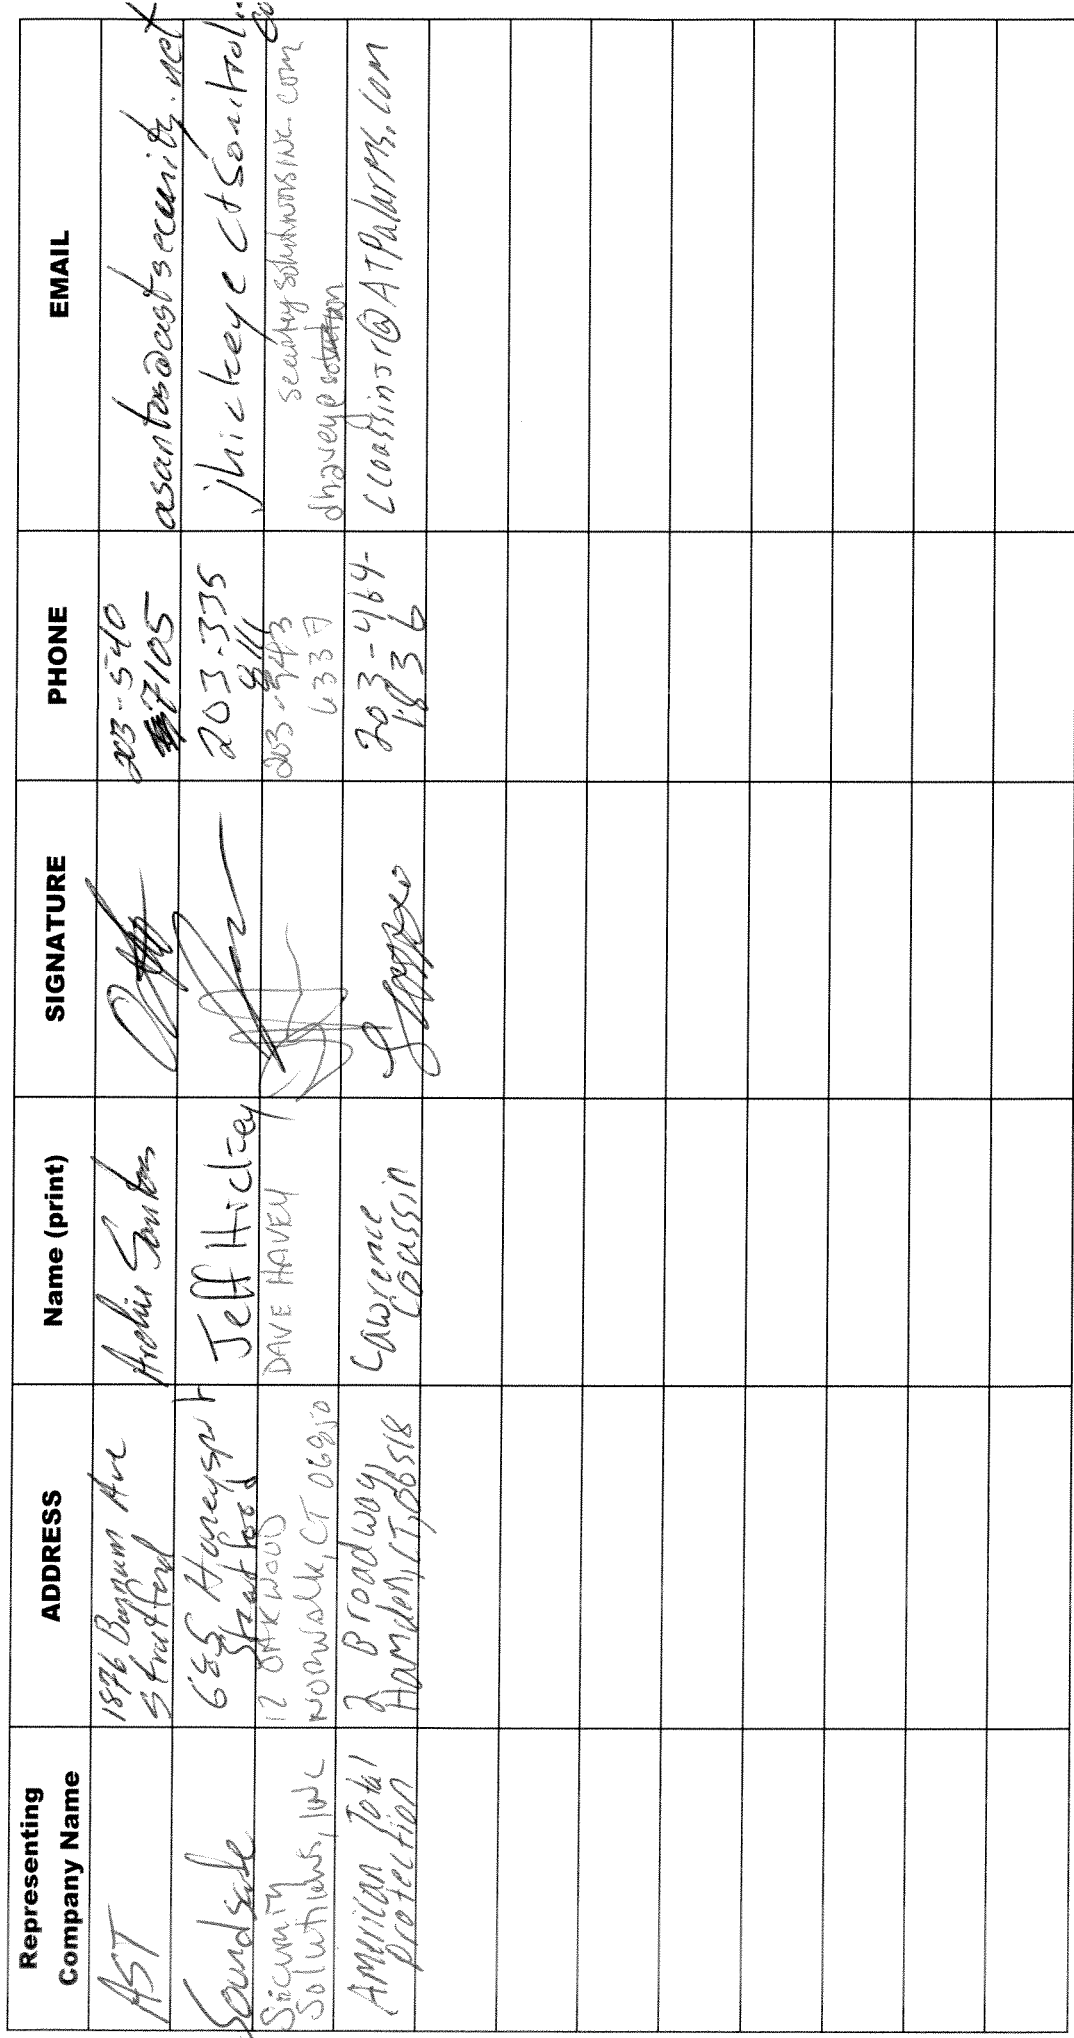 Representing
Company Name
ADDRESS
Name (print)
SIGNATURE
PHONE
EMAIL
AST
1876 Barnum Ave
Stratford
Archie Santos
203-540
7105
asantos@astsecurity.net
Soundsafe
Stratford
Jeff Hickey
203-335
Security
Solutions, INC
12 OAKWOOD
NORWALK, CT
DAVE HAVEY
securitysolutionsINC.com
American Total
Protection
2 Broadway
Hamden, CT, 06518
Lawrence
Coassin
203-464-
1836
LCoassinJr@ATPalarms.com